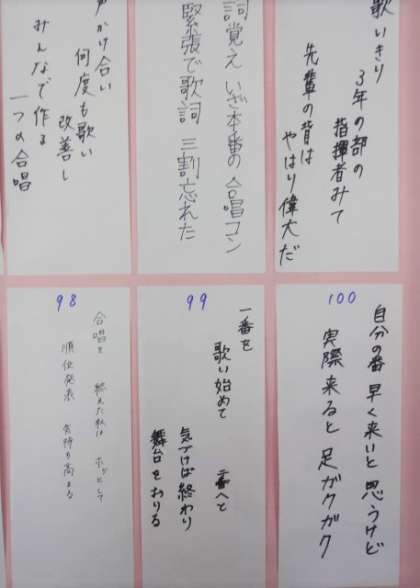 歌いきり
3年の部の
指揮者みて
先輩の背は
やはり偉大だ
詞覚え いざ本番の 合唱コン
緊張で歌詞 三割忘れた
声かけ合い
何度も歌い
改善し
みんなで作る
一つの合唱
100
自分の番 早く来いと 思うけど
実際来ると 足ガクガク
99
一番を
歌い始めて
二番へと
気づけば終わり
舞台をおりる
98
合唱を 終えた私は ホッとして
順位発表 気持ち高まる